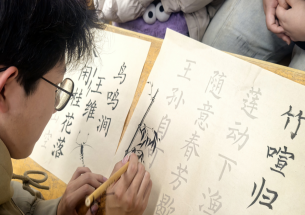 竹喧归
莲动下渔
随意春芳歇
王孙自
鸟鸣涧
王维
闲桂花落